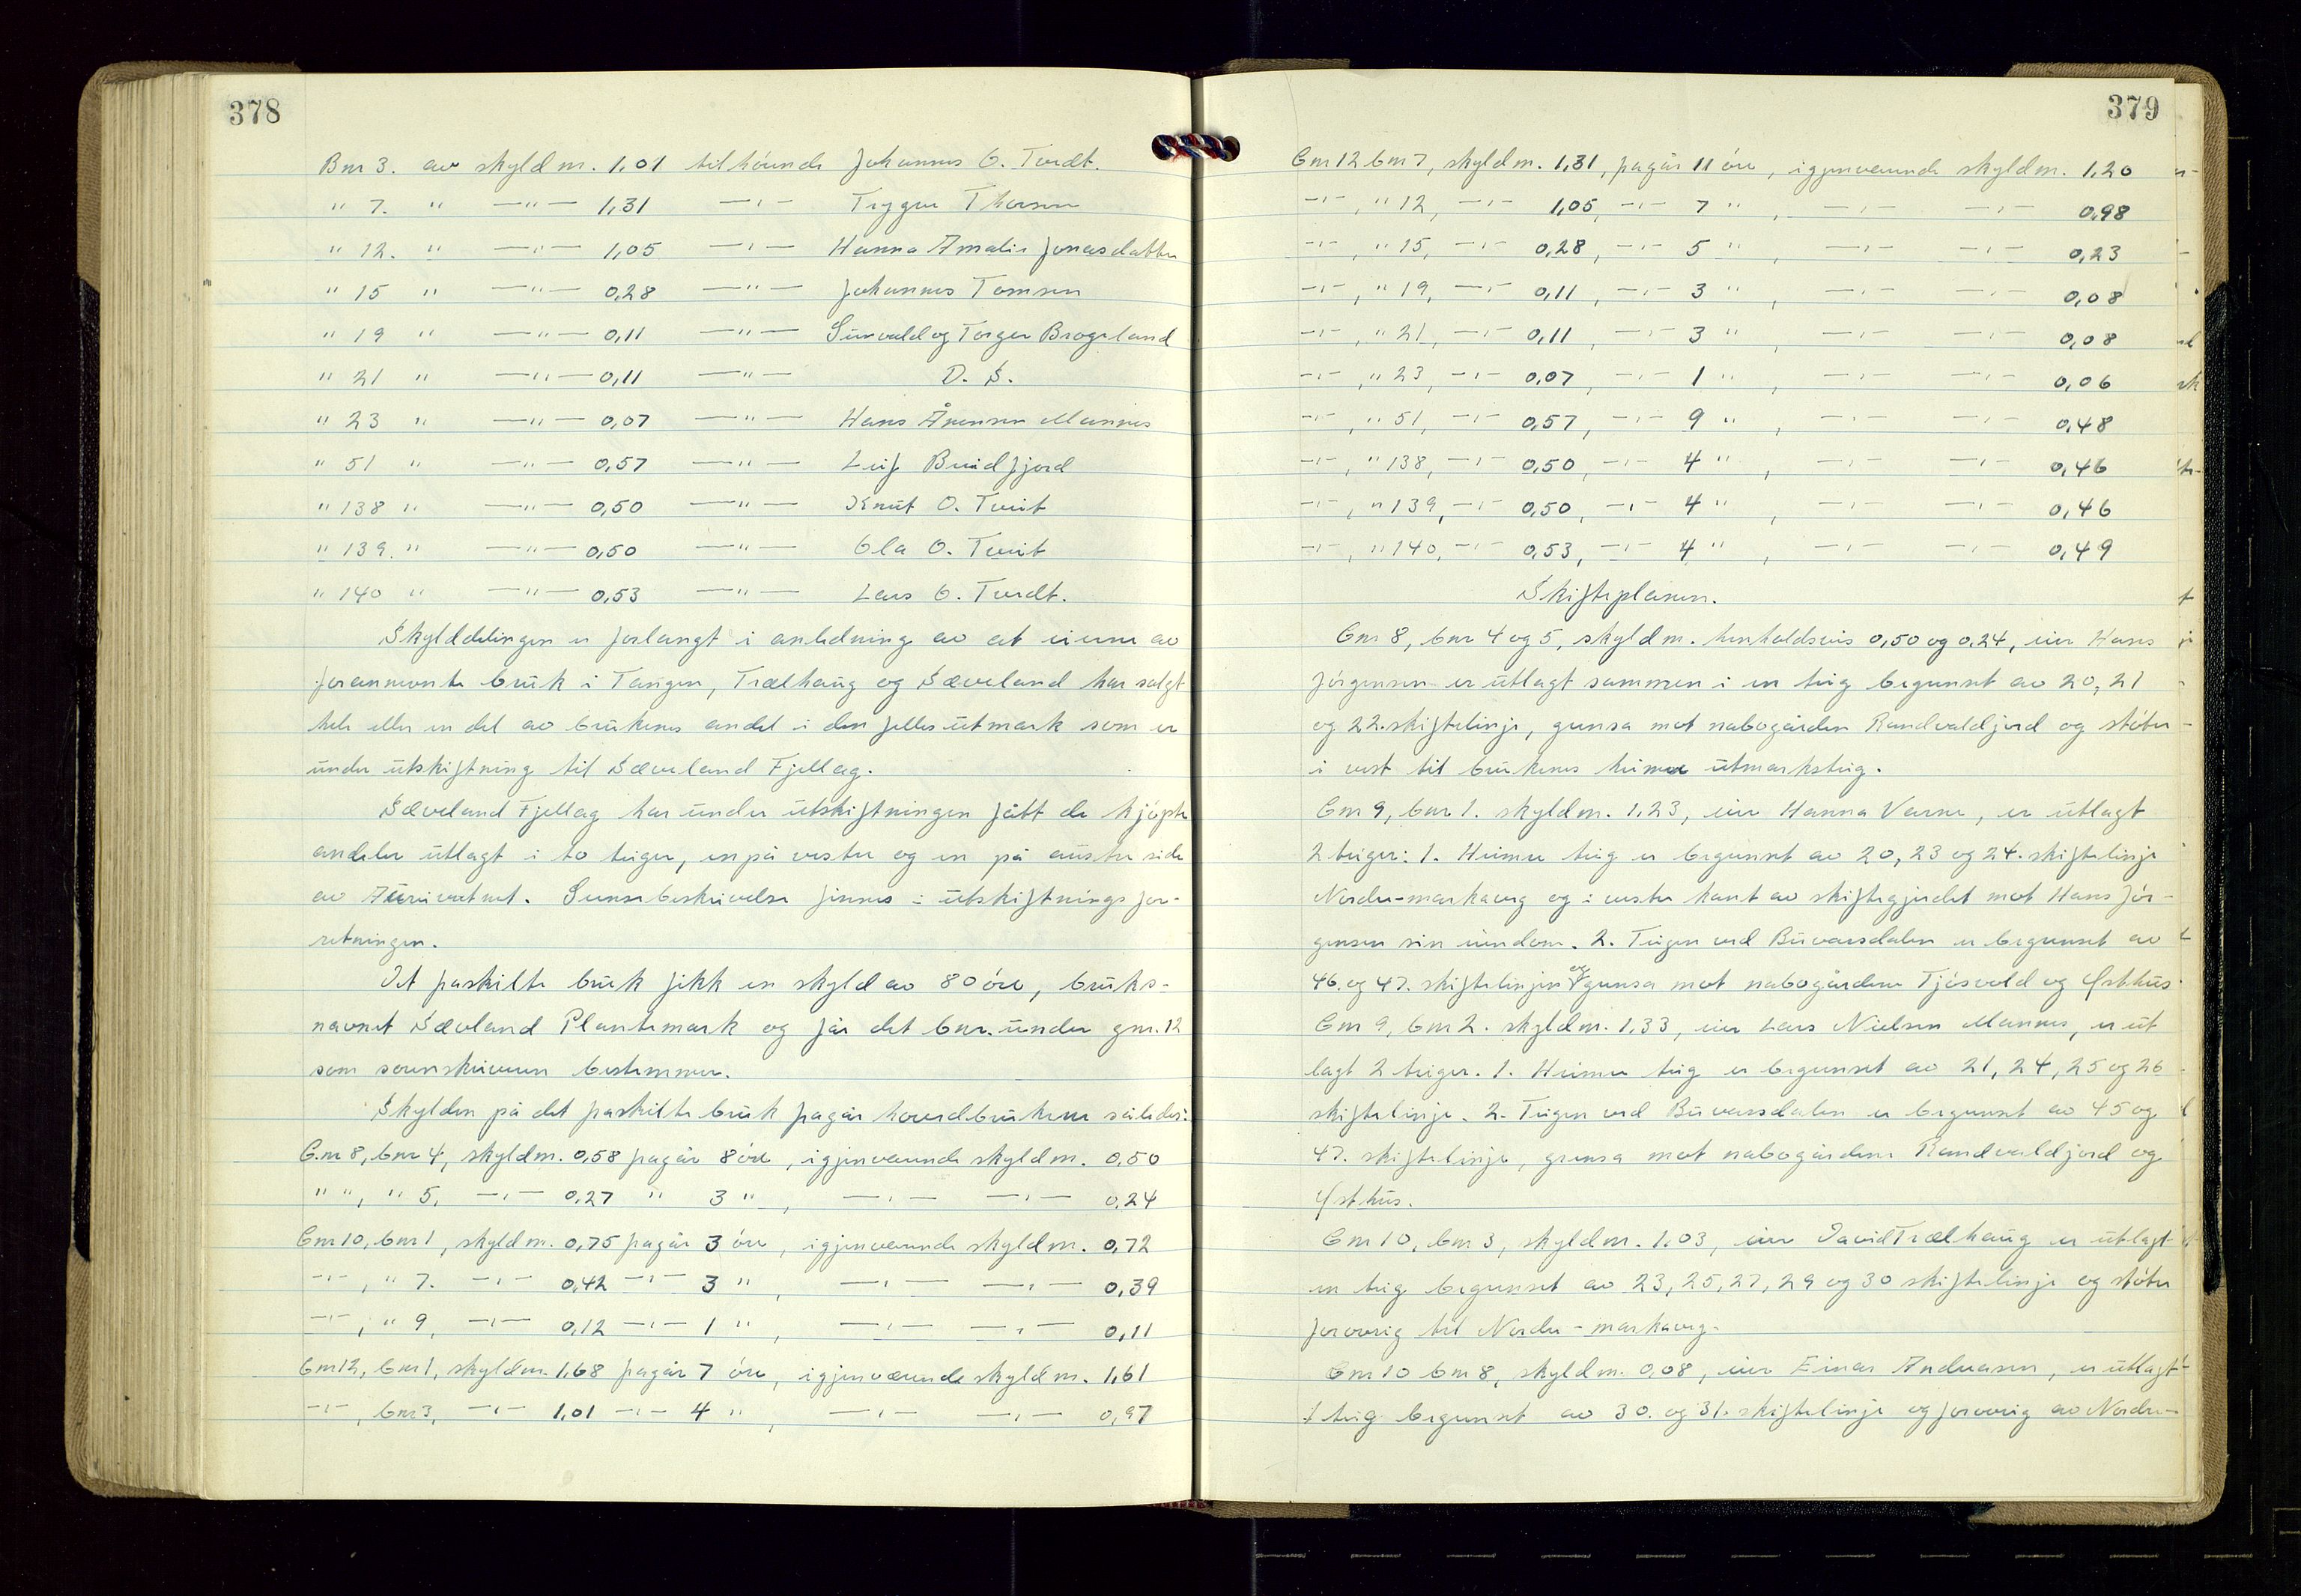 378
Bnr 3. av skyldm. 1,01 tilhörende Johannes O. Tveidt.
" 7. " —"— 1,31 —"— Trygve Thorsen
" 12. " —"— 1,05 —"— Hanna Amalie Jonasdatter
" 15 " —"— 0,28 —"— Johannes Tomsen
" 19 " —"— 0,11 —"— Sünvald og Torger Brogeland
" 21 " —"— 0,11 —"— D. S.
" 23 " —"— 0,07 —"— Hans Ånensen Mannes
" 51 " —"— 0,57 —"— Leif Breidfjord
" 138 " —"— 0,50 —"— Knüt O. Tveit
" 139. " —"— 0,50 —"— Ola O. Tveit
" 140 " —"— 0,53 —"— Lars O. Tveidt.
Skylddelingen er forlangt i anledning av at eierne av
forannevnte brük i Tangen, Trælhaüg og Sæveland har solgt
hele eller en del av brükenes andel i den felles ütmark som er
ünder ütskiftning til Sæveland Fjellag.
Sæveland Fjellag har ünder ütskiftningen fått de kjöpte
andeler ütlagt i to teiger, en på vestre og en på aüstre side
av vatnet. Grensebeskrivelse finnes i ütskiftningsfor-
retningen.
Det fraskilte brük fikk en skyld av 80 öre, brüks-
navnet Sæveland Plantemark og får det bnr. ünder gnr. 12
som sorenskriveren bestemmer.
Skylden på det fraskilte brük fragår hovedbrükene således:
Gnr 8, bnr 4, skyldm. 0,58 fragår 8 öre, igjenværende skyldm. 0,50
" ", " 5, —"— 0,27 " 3 ", —"— —"— 0,24
Gnr 10, bnr 1, skyldm. 0,75 fragår 3 öre, igjenværende skyldm. 0,72
—"—, " 7. —"— 0,42 —"— 3 ", —"— —"— 0,39
—"—, " 9, —"— 0,12 —"— 1 ", —"— —"— 0,11
Gnr 12, bnr 1, skyldm. 1,68 fragår 7 öre, igjenværende skyldm. 1,61
—"—, bnr 3, —"— 1,01 —"— 4 ", —"— —"— 0,97
379
Gnr 12 bnr 7, skyldm. 1,31, fragår 11 öre, igjenværende skyldm. 1,20
—"—, " 12, —"— 1,05, —"— 7 ", —"— —"— 0,98
—"—, " 15, —"— 0,28, —"— 5 ", —"— —"— 0,23
—"—, " 19, —"— 0,11, —"— 3 ", —"— —"— 0,08
—"—, " 21, —"— 0,11, —"— 3 ", —"— —"— 0,08
—"—, " 23, —"— 0,07, —"— 1 ", —"— —"— 0,06
—"—, " 51, —"— 0,57, —"— 9 ", —"— —"— 0,48
—"—, " 138, —"— 0,50, —"— 4 ", —"— —"— 0,46
—"—, " 139, —"— 0,50, —"— 4 ", —"— —"— 0,46
—"—, " 140, —"— 0,53, —"— 4 ", —"— —"— 0,49
Skifteplanen.
Gnr 8, bnr 4 og 5, skyldm. henholdsvis 0,50 og 0,24, eier Hans
Jörgensen er ütlagt sammen i en teig begrenset av 20, 21
og 22. skiftelinje, grensa mot nabogården Randvaldjord og stöter
i vest til brükenes heimre ütmarksteig.
Gnr 9, bnr 1. skyldm. 1,23, eier Hanna Varne, er ütlagt
2 teiger: 1. Heimre teig er begrenset av 20, 23 og 24. skiftelinje
Nordre-markaveg og i vestre kant av skiftegjerdet mot Hans Jör-
gensen sin eiendom. 2. Teigen ved Büvarsdalen er begrenset av
46. og 47. skiftelinjen og grensa mot nabogårdene Tjösvold og Østhüs
Gnr 9, bnr 2. skyldm. 1,33, eier Lars Nielsen Mannes, er üt
lagt 2 teiger. 1. Heimre teig er begrenset av 21, 24, 25 og 26
skiftelinje. 2. Teigen ved Büvarsdalen er begrenset av 45 og
47. skiftelinje, grensa mot nabogårdene Randvaldjord og
Østhüs.
Gnr 10, bnr 3, skyldm. 1,03, eier David Trælhaüg er ütlagt
en teig begrenset av 23, 25, 27, 29 og 30 skiftelinje og stöter
forövrig til Nordre-markaveg.
Gnr 10 bnr 8, skyldm. 0,08, eier Einar Andreasen, er ütlagt
1 teig begrenset av 30. og 31. skiftelinje og forövrig av Nordre-